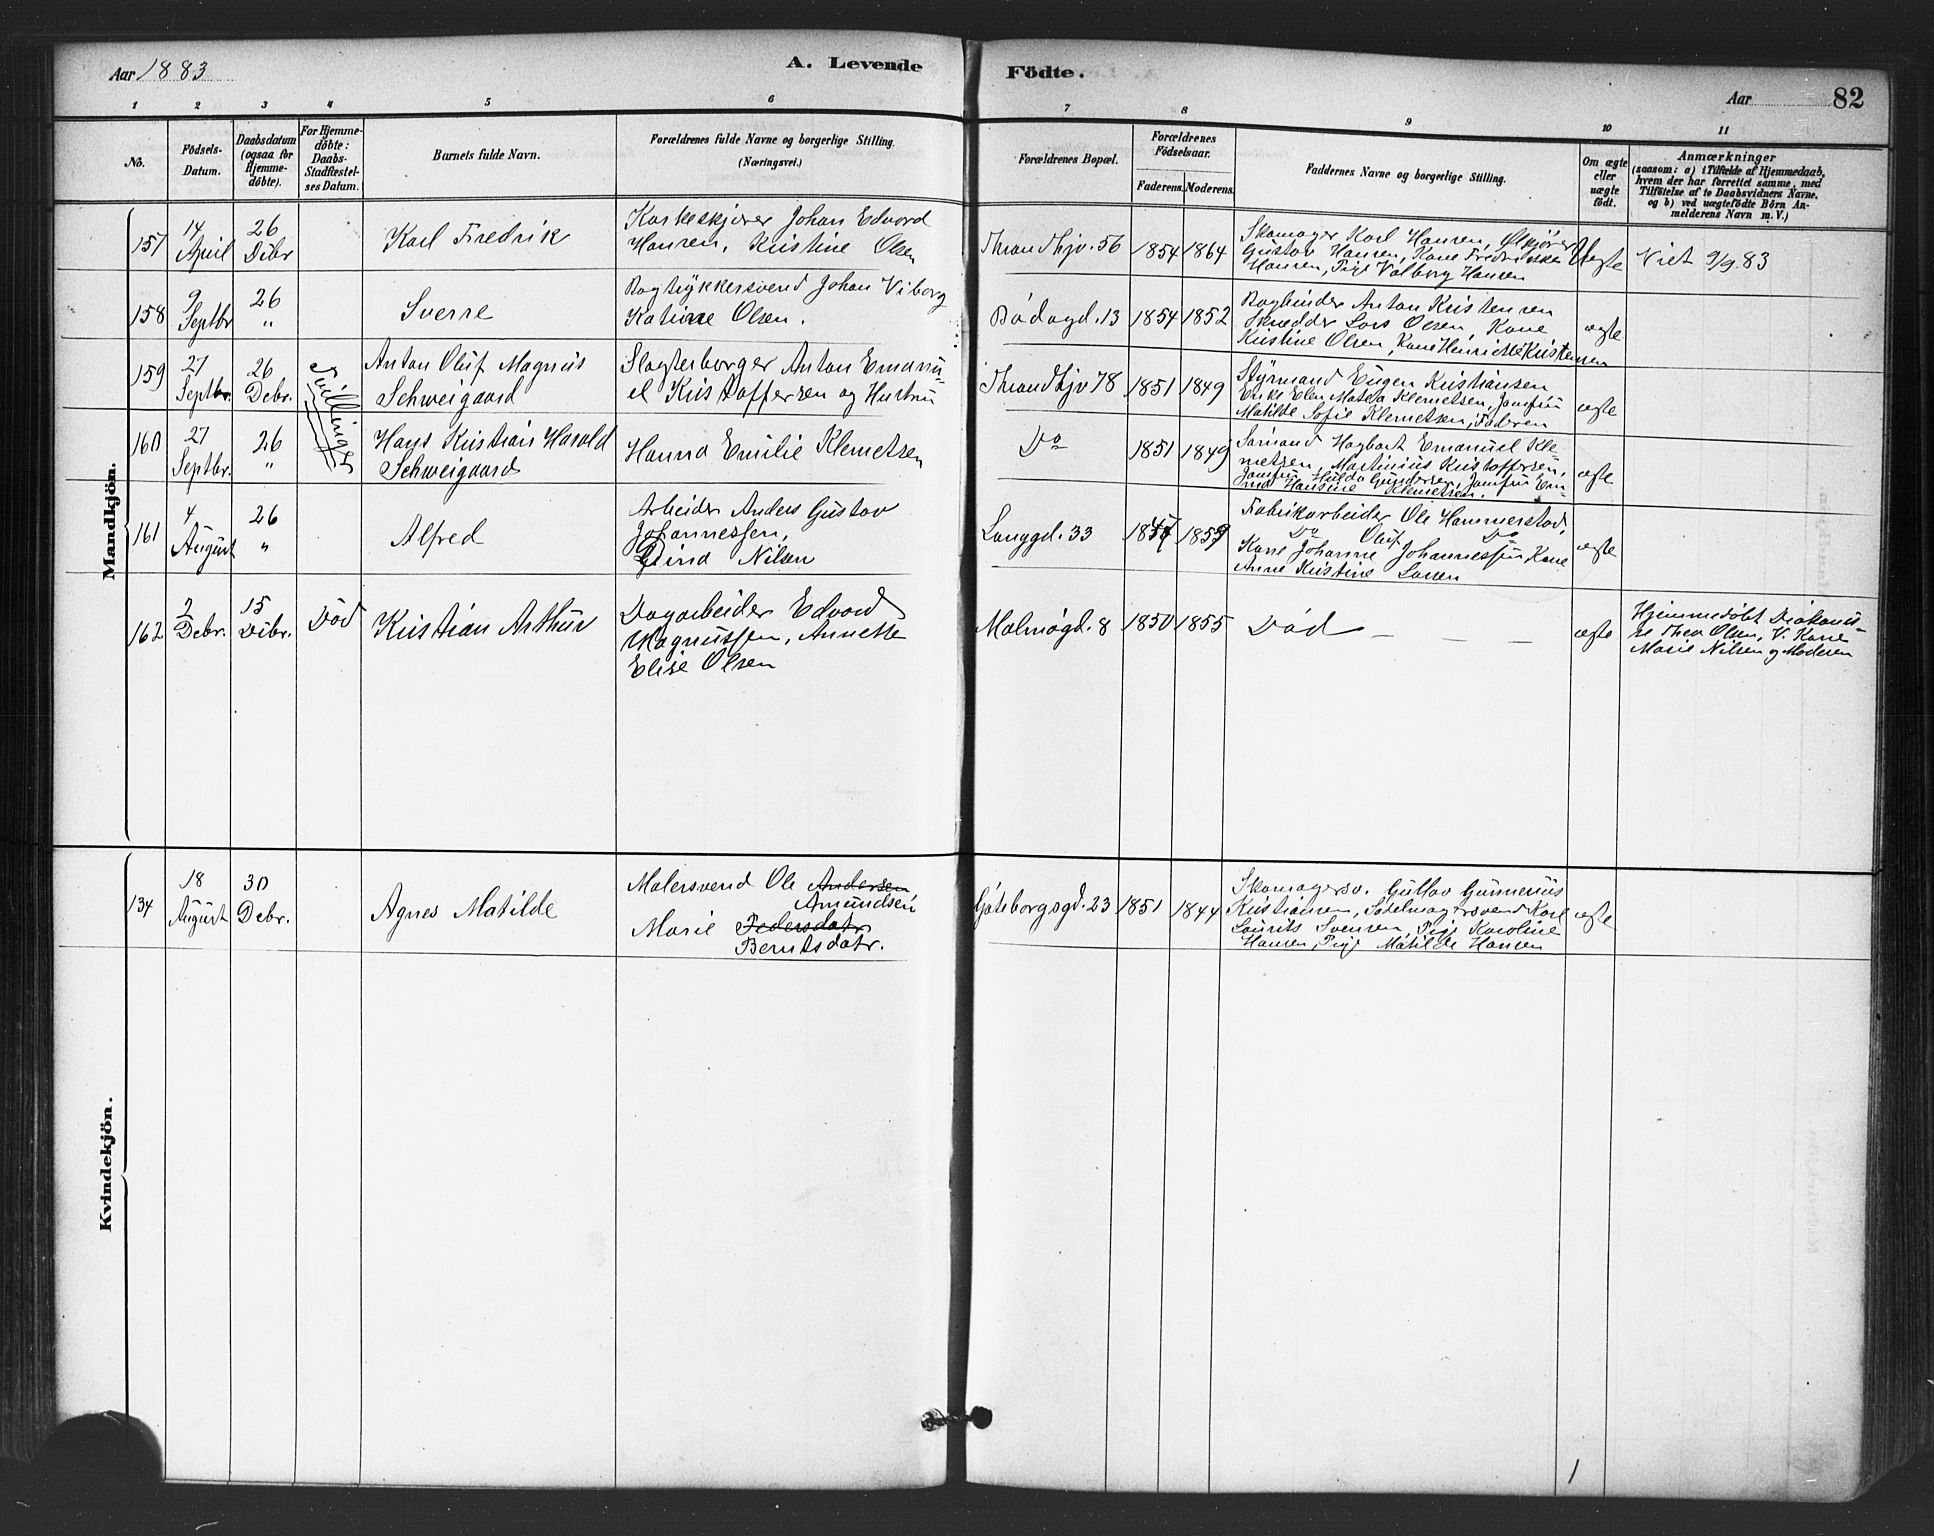 Aar 1883
A. Levende
Födte.
Aar
82
1 2 3 4 5 6 7 8 9 10 11
No.
Födsels-
Datum.
Daabsdatum
(ogsaa for
Hjemme-
döbte).
For Hjemme-
döbte:
Daabs-
Stadfæstel-
ses Datum.
Barnets fulde Navn.
Forældrenes fulde Navne og borgerlige Stilling.
(Næringsvei.)
Forældrenes Bopæl.
Forældrenes
Födselsaar.
Faderens. Moderens.
Faddernes Navne og borgerlige Stilling.
Om ægte
eller
uægte
födt.
Anmærkninger
(saasom: a) i Tilfælde af Hjemmedaab,
hvem der har forrettet samme, med
Tilföielse af to Daabsvidners Navne.
og b) ved uægtefödte Börn An-
melderens Navn m. V.)
Mandkjön.
157
14
April
26
Debr
Karl Fredrik
Johan Edvard
Hansen, Kristine Olsen
Thrandhjv. 56
1854 1864
Skomager Karl Hansen, Ølkjører
Gustav Hansen, Kone Fredrikke
Hansen, Pige Valborg Hansen
Uægte
Viet 9/9 83
158
9
Septbr
26
"
Sverre
Bogtrykkersvend Johan Viborg
Katinne Olsen.
Bødøgd. 13
1854 1852
Bogbinder Anton Kristensen
Skrædder Lars Olsen, Kone
Kristine Olsen, Kone Henriette Kristensen
ægte
159
27
Septbr.
26
Debr.
Tvillinger
Anton Oluf Magnus
Schweigaard
Slagterborger Anton Emanu-
el Kristoffersen og Hustru
Thrandhjv 78
1851 1849
Styrmand Eugen Kristiansen
Enke Elen Matea Klemetsen, Jomfru
Matilde Sofie Klemetsen, Faderen
ægte
160
27
Septbr.
26
"
Hans Kristian Harald
Schweigaard
Hanna Emilie Klemetsen
Do
1851 1849
Sømand Hagbart Emanuel Kle-
metsen, Martinius Kristoffersen,
Jomfru Hulda Gundersen, Jomfru Em-
ma Hansine Klemetsen.
ægte
161
4
August
26
"
Alfred
Arbeider Anders Gustav
Johannessen,
Dina Nilsen
Langgd. 33
1859
Fabrikarbeider Ole Hammerstad,
Do Oluf Do
Kone Johanne Johannessen Kone
Anne Kristine Larsen
ægte
162
2
Debr.
15
Debr.
Død
Kristian Arthur
Dagarbeider Edvard
Magnussen, Annette
Elise Olsen
Malmøgd. 8
1850 1855
Død — — — —
ægte
Hjemmedøbt Diakonis-
se Thea Olsen, V. Kone
Marie Nilsen og Moderen
Kvindekjön.
134
18
August
30
Debr.
Agnes Matilde
Malersvend Ole Andersen
Amundsen
Marie Pedersdatr
Berntsdatr.
Gøteborgsgd. 23
1851 1844
Skomagersv. Gustav Gunnerius
Kristiansen, Sadelmagersvend Karl
Laurits Svensen, Pige Karoline
Hansen, Pige Matilde Hansen
ægte